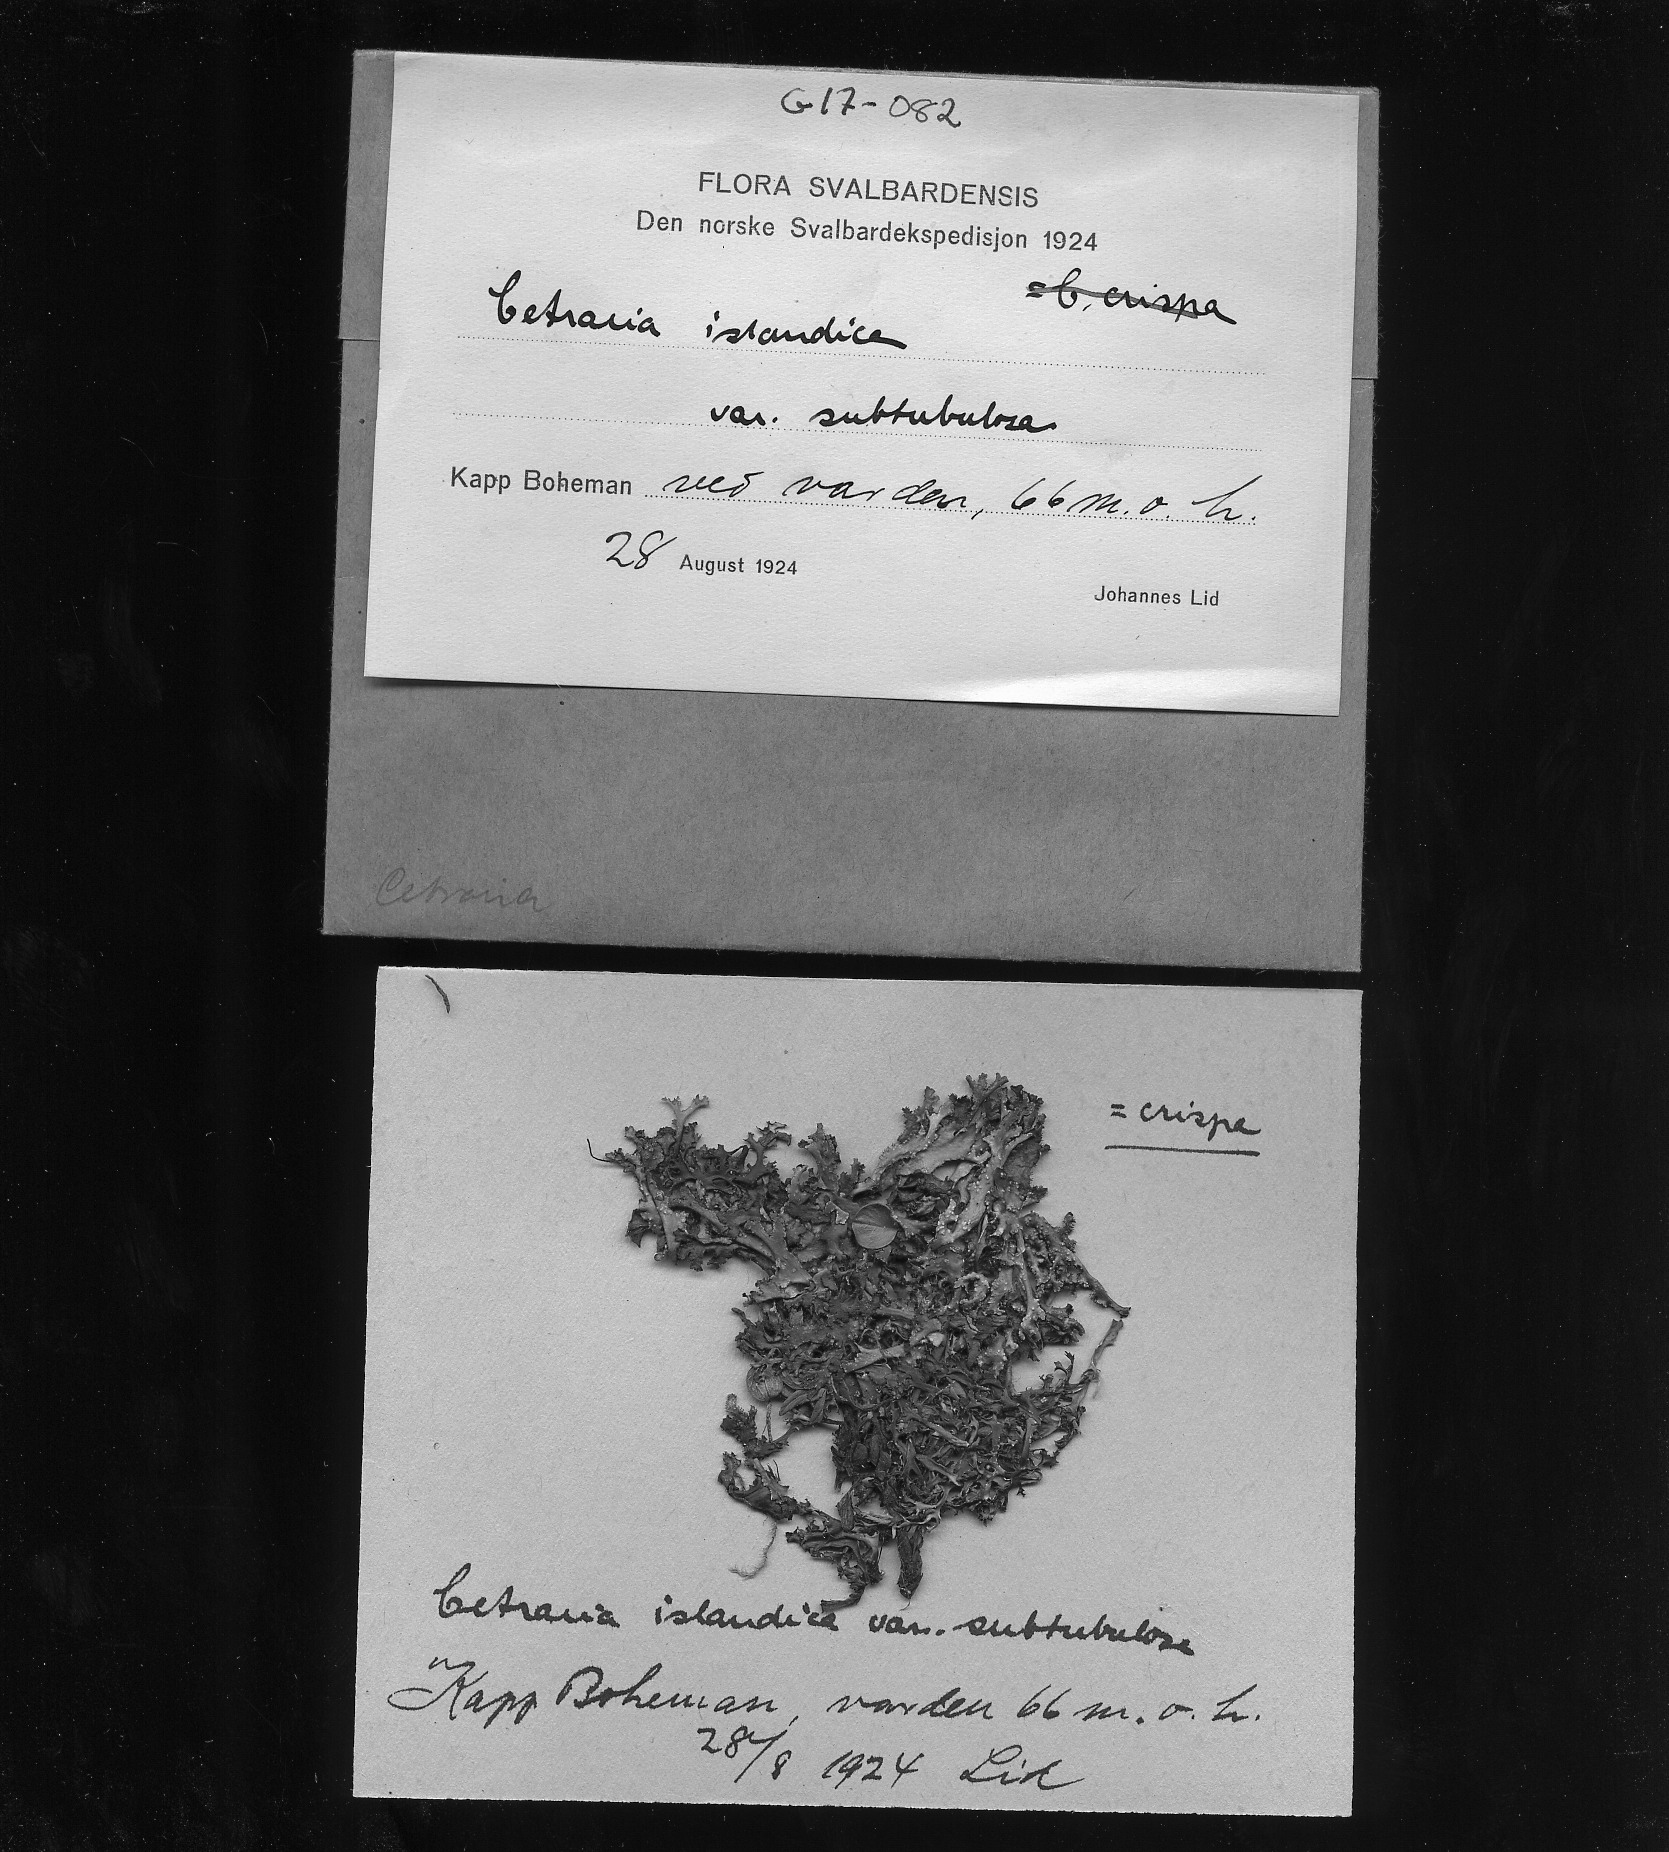 G17-082
FLORA SVALBARDENSIS
Den norske Svalbardekspedisjon 1924
= C. crispa
Cetraria islandica
var. subtubulosa
Kapp Boheman ved varden, 66 m. o. h.
28 August 1924
Johannes Lid
Cetraria
= crispa
Cetraria islandica var. subtubulosa
Kapp Boheman, varden 66 m. o. h.
28/8 1924 Lid